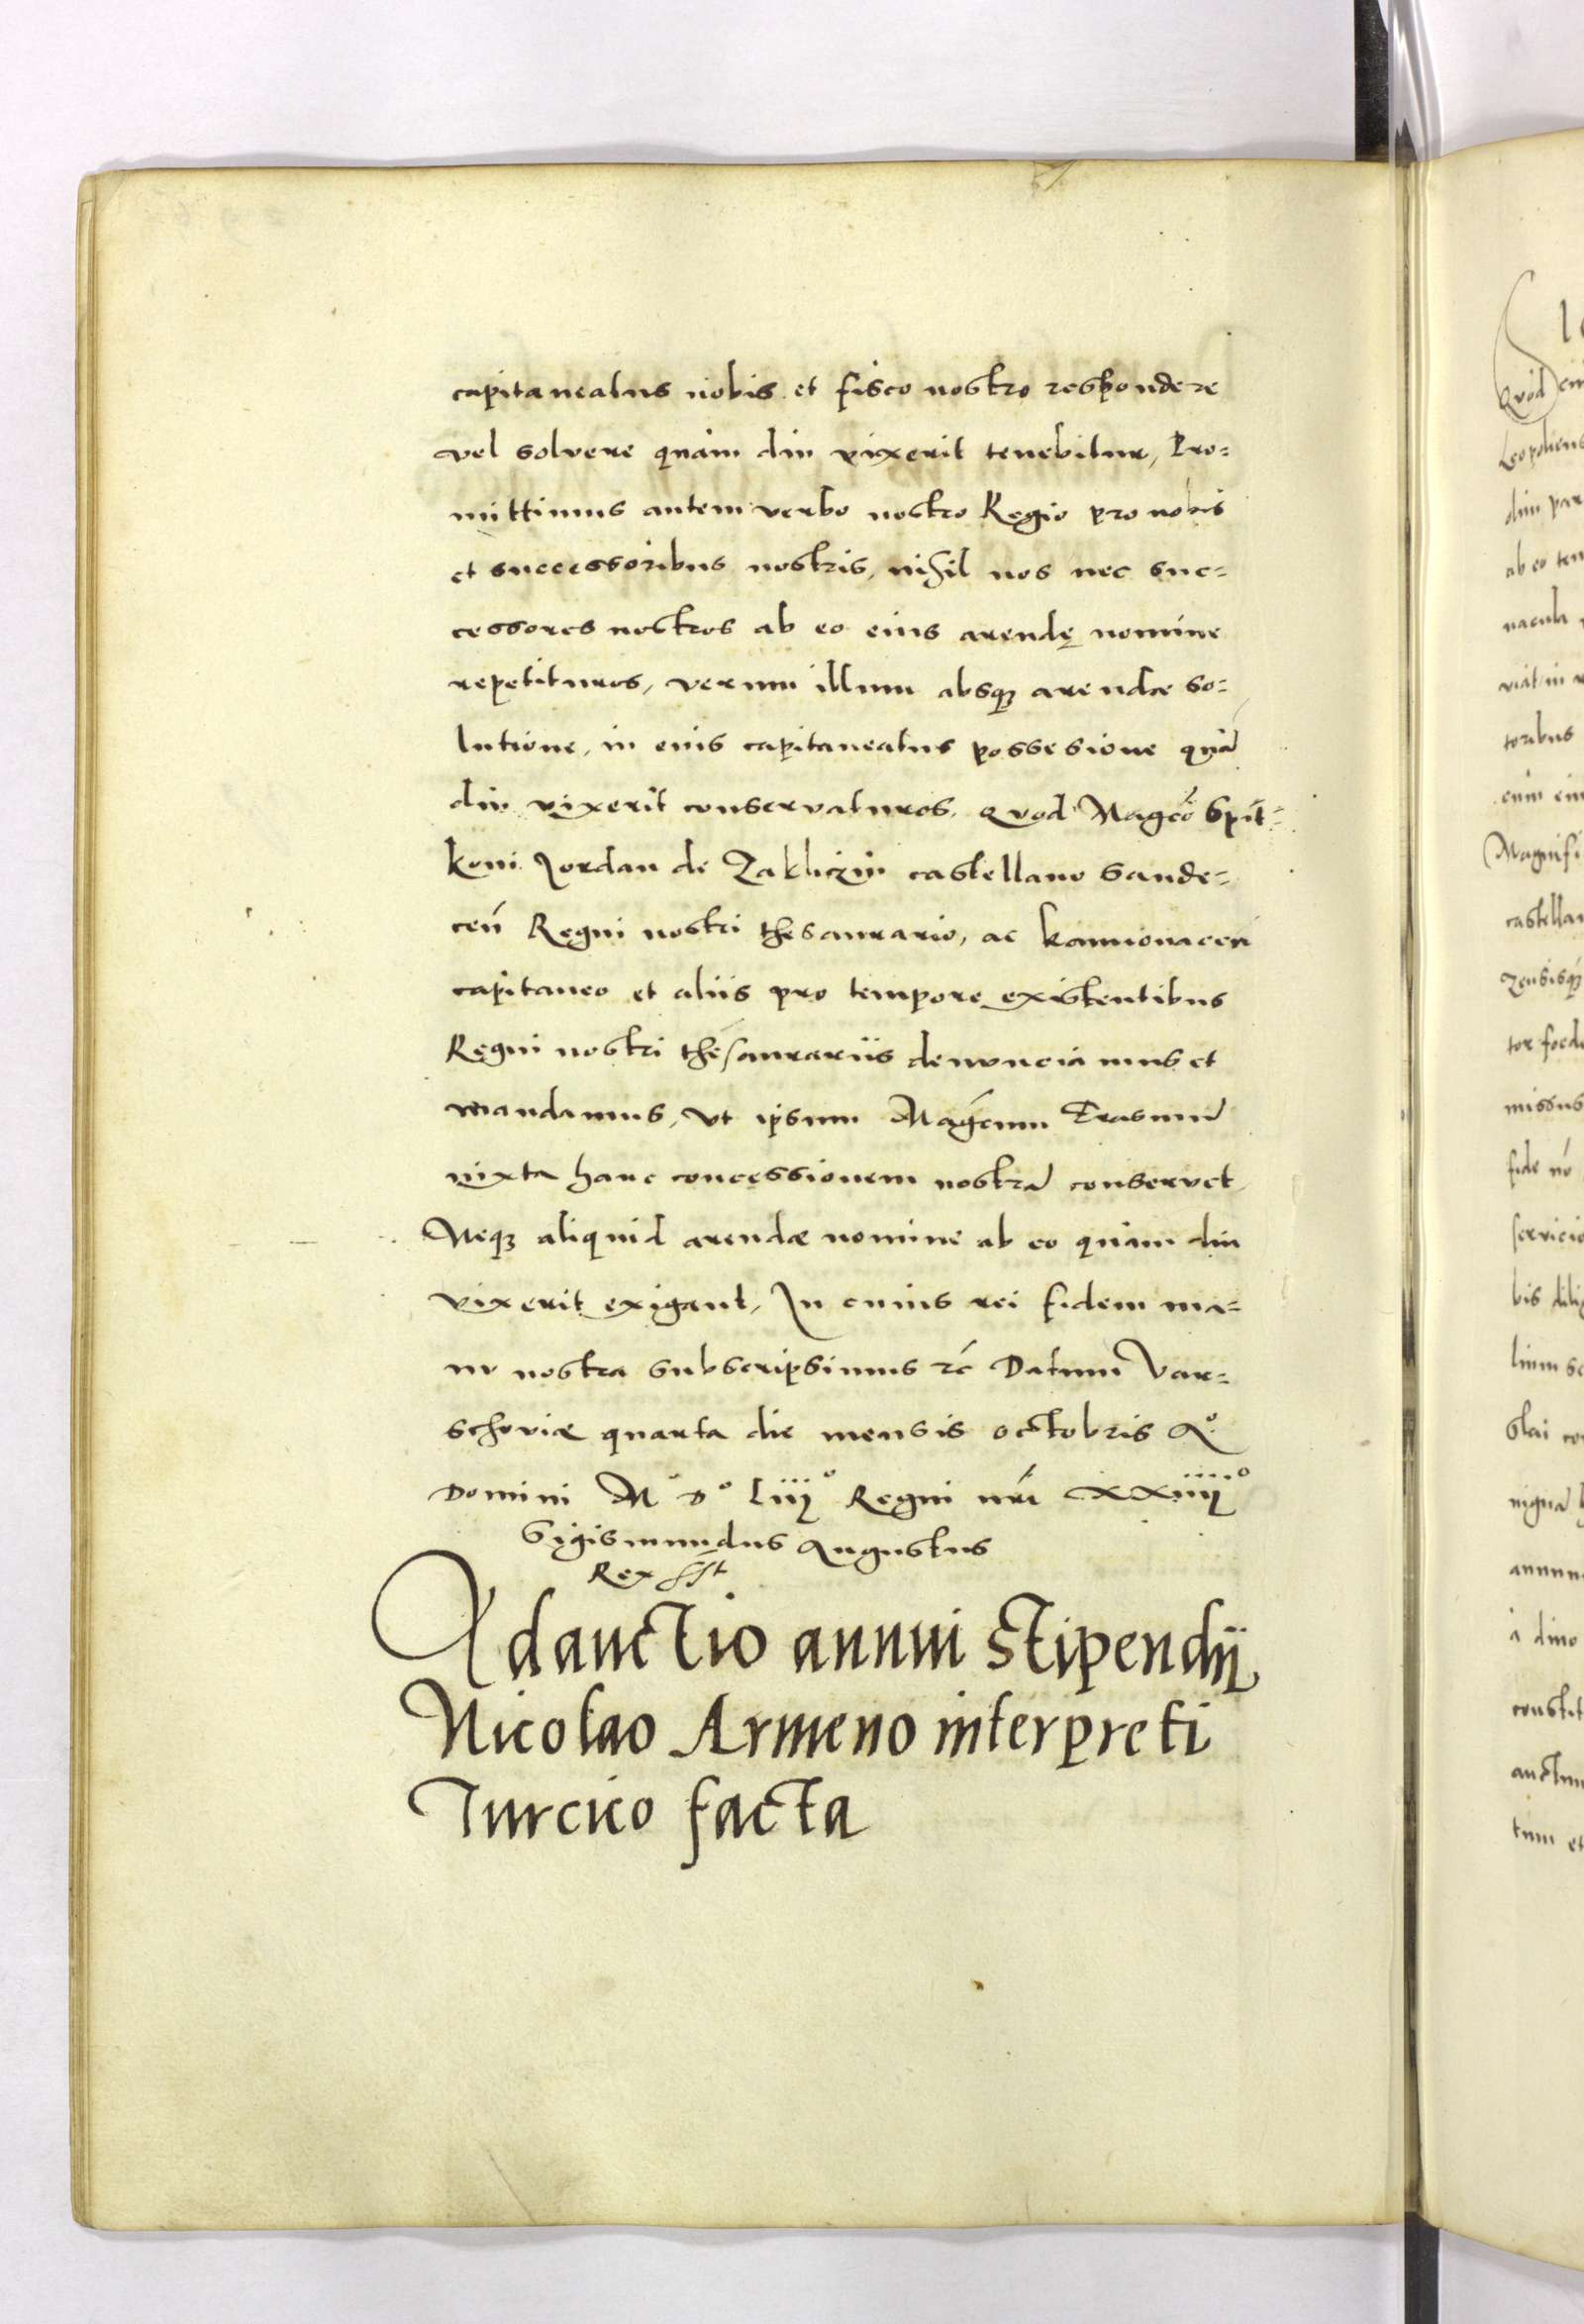 capitaneatus nobis et fisco nostro respondere
vel solvere quàm diu vixerit tenebitur, Pro=
mittimus autem verbo nostro Regio pro nobis
et successoribus nostris, nihil nos nec suc=
cessores nostros ab eo eius arendę nomine
repetituros, verum illum absqꝫ arendæ so=
lutione, in eius capitaneatus possesione quā
diu vixerit conservaturos. Quod Magco Spit=
koni Jordan de Zakliczin castellano Sande=
ceń Regni nostri thesaurario, ac kamionaceń
capitaneo et aliis pro tempore existentibus
Regni nostri thesaurariis denunciamus et
mandamus, ut ipsum Magcum Erasmū
iuxta hanc concessionem nostrā conservet,
Neqꝫ aliquid arendæ nomine ab eo quàm diu
vixerit exigant, In cuius rei fidem ma=
nu nostra subscripsimus &c Datum Var=
schoviæ quarta die mensis octobris Aº
Domini Mº Dº Liijº Regni nri XXiiijº
Sigismundus Augustus
Rex sst
Adauctio annui stipendij
Nicolao Armeno interpreti
Turcico facta
Quod
Leopoliens
diu par
ab eo ten
nacula
viat in
toribus
cum
Magnifi
castellan
zensisqꝫ
tor foed
missus
fide nó
servicio
bis dili
linum
annu
à dino
constit
auctum
tum et